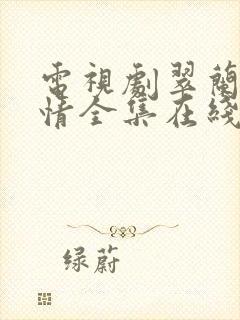 電視劇翠蘭
情全集在綫
绿蔚